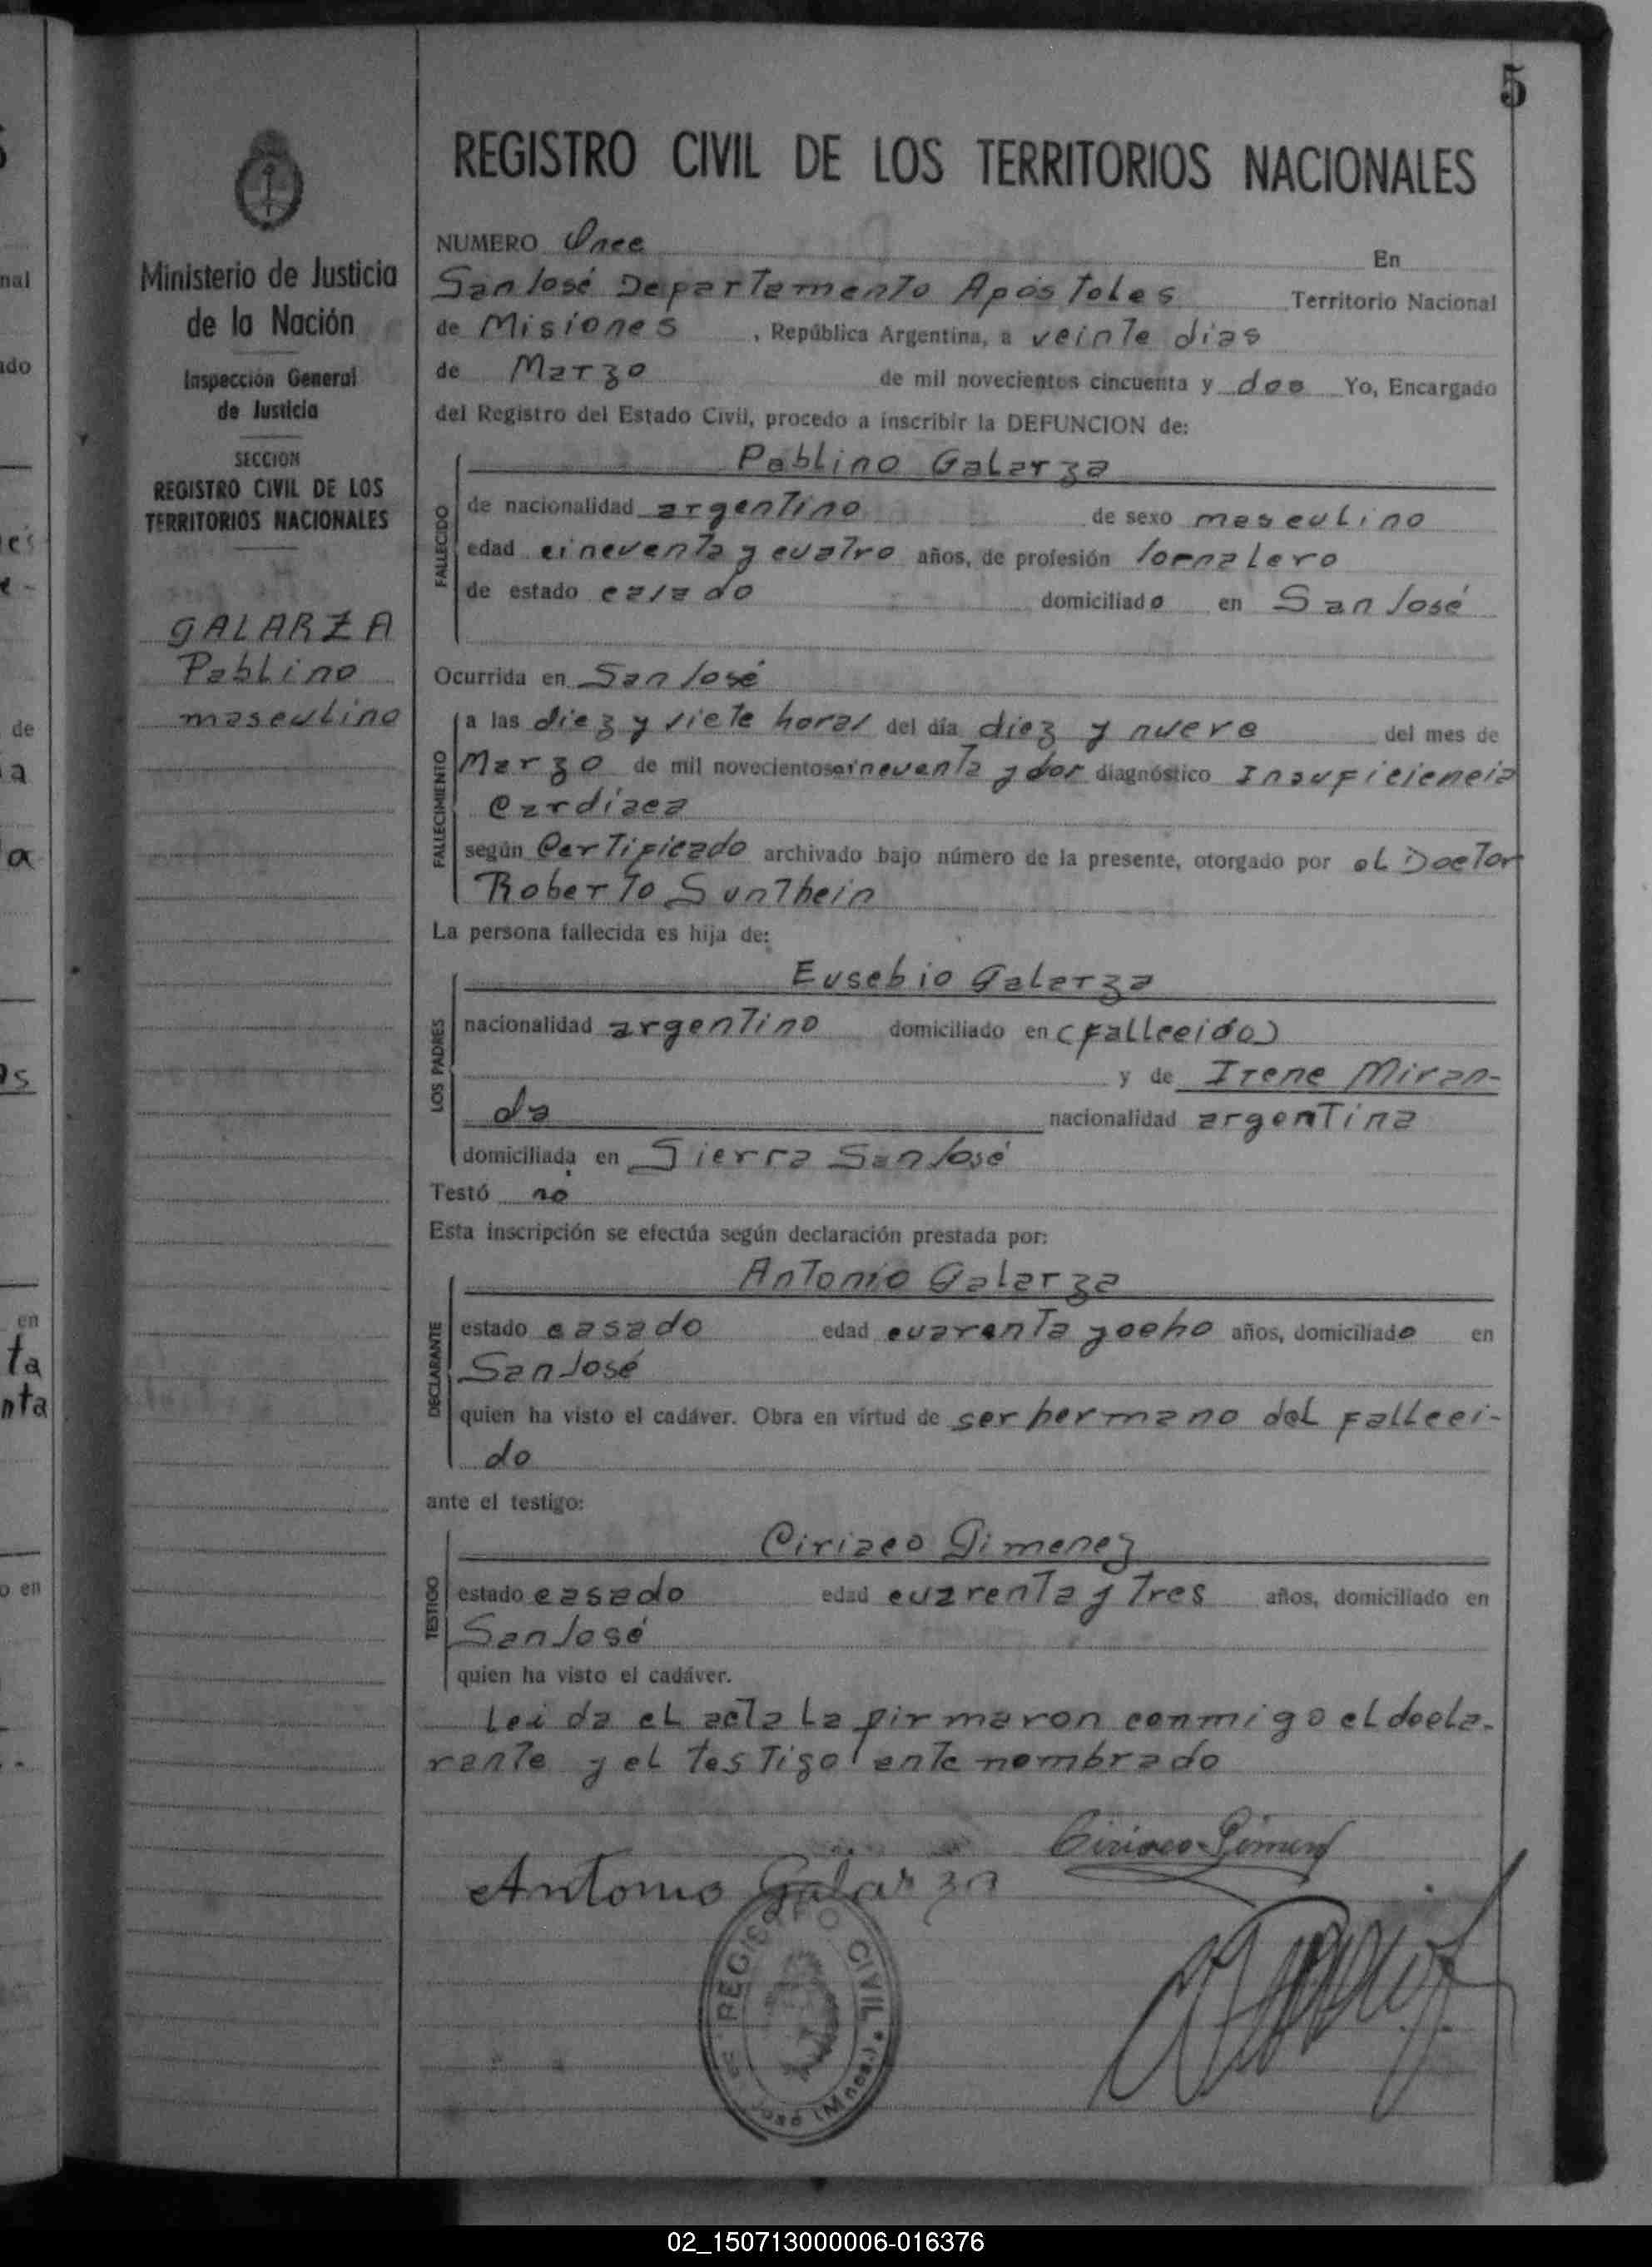 5
REGISTRO CIVIL DE LOS TERRITORIOS NACIONALES
Ministerio de Justicia
de la Nación
Inspección General
de Justicia
SECCION
REGISTRO CIVIL DE LOS
TERRITORIOS NACIONALES
GALARZA
Pablino
masculino
NUMERO Once
En
San José Departamento Apóstoles Territorio Nacional
de Misiones , República Argentina, a veinte dias
de Marzo de mil novecientos cincuenta y dos Yo, Encargado
del Registro del Estado Civil, procedo a inscribir la DEFUNCION de:
Pablino Galarza
FALLECIDO
de nacionalidad argentino de sexo masculino
edad cincuenta y cuatro años, de profesión Jornalero
de estado casado domiciliado en San José
Ocurrida en San José
FALLECIMIENTO
a las diez y siete horas del día diez y nueve del mes de
Marzo de mil novecientos cincuenta y dos diagnóstico Insuficiencia
Cardíaca
según Certificado archivado bajo número de la presente, otorgado por el Doctor
Roberto Sunthein
La persona fallecida es hija de:
LOS PADRES
Eusebio Galarza
nacionalidad argentino domiciliado en (fallecido)
y de Irene Miran-
da nacionalidad argentina
domiciliada en Sierra San José
Testó no
Esta inscripción se efectúa según declaración prestada por:
DECLARANTE
Antonio Galarza
estado casado edad cuarenta y ocho años, domiciliado en
San José
quien ha visto el cadáver. Obra en virtud de ser hermano del falleci-
do
ante el testigo:
TESTIGO
Ciriaco Gimenez
estado casado edad cuarenta y tres años, domiciliado en
San José
quien ha visto el cadáver.
Leida el acta la firmaron conmigo el decla-
rante y el testigo ante nombrado
Ciriaco Gimenez
Antonio Galarza
REGISTRO CIVIL
José (Mnes)
02_150713000006-016376